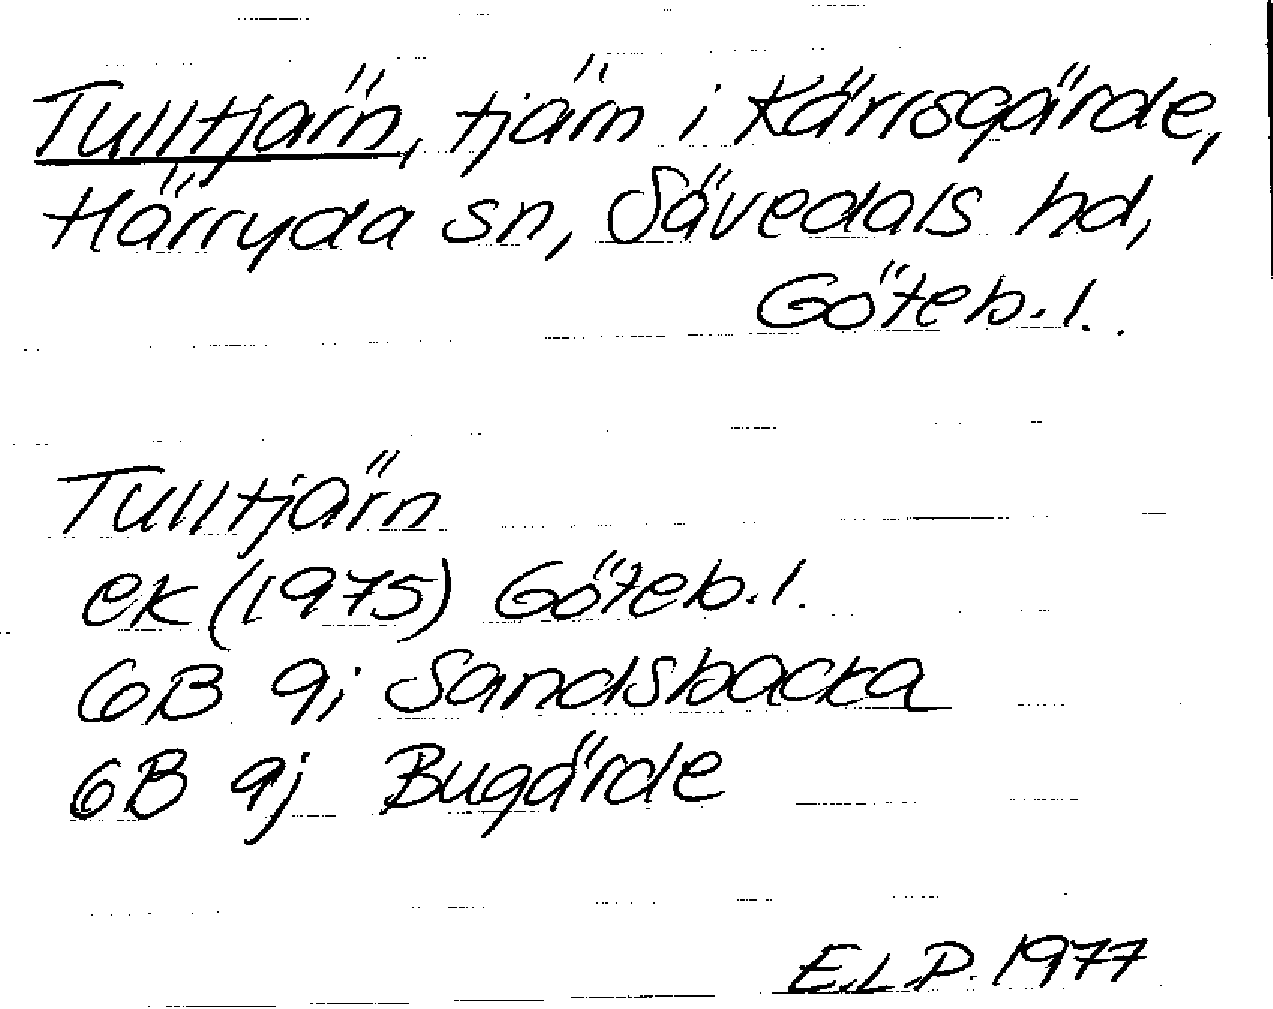 Tulltjärn, tjärn i Kärrsgärde,
Härryda sn, Sävedals hd,
Göteb. l.
Tulltjärn
ek (1975) Göteb. l.
6B 9i Sandsbacka
6B 9j Bugärde
E.L.P. 1977